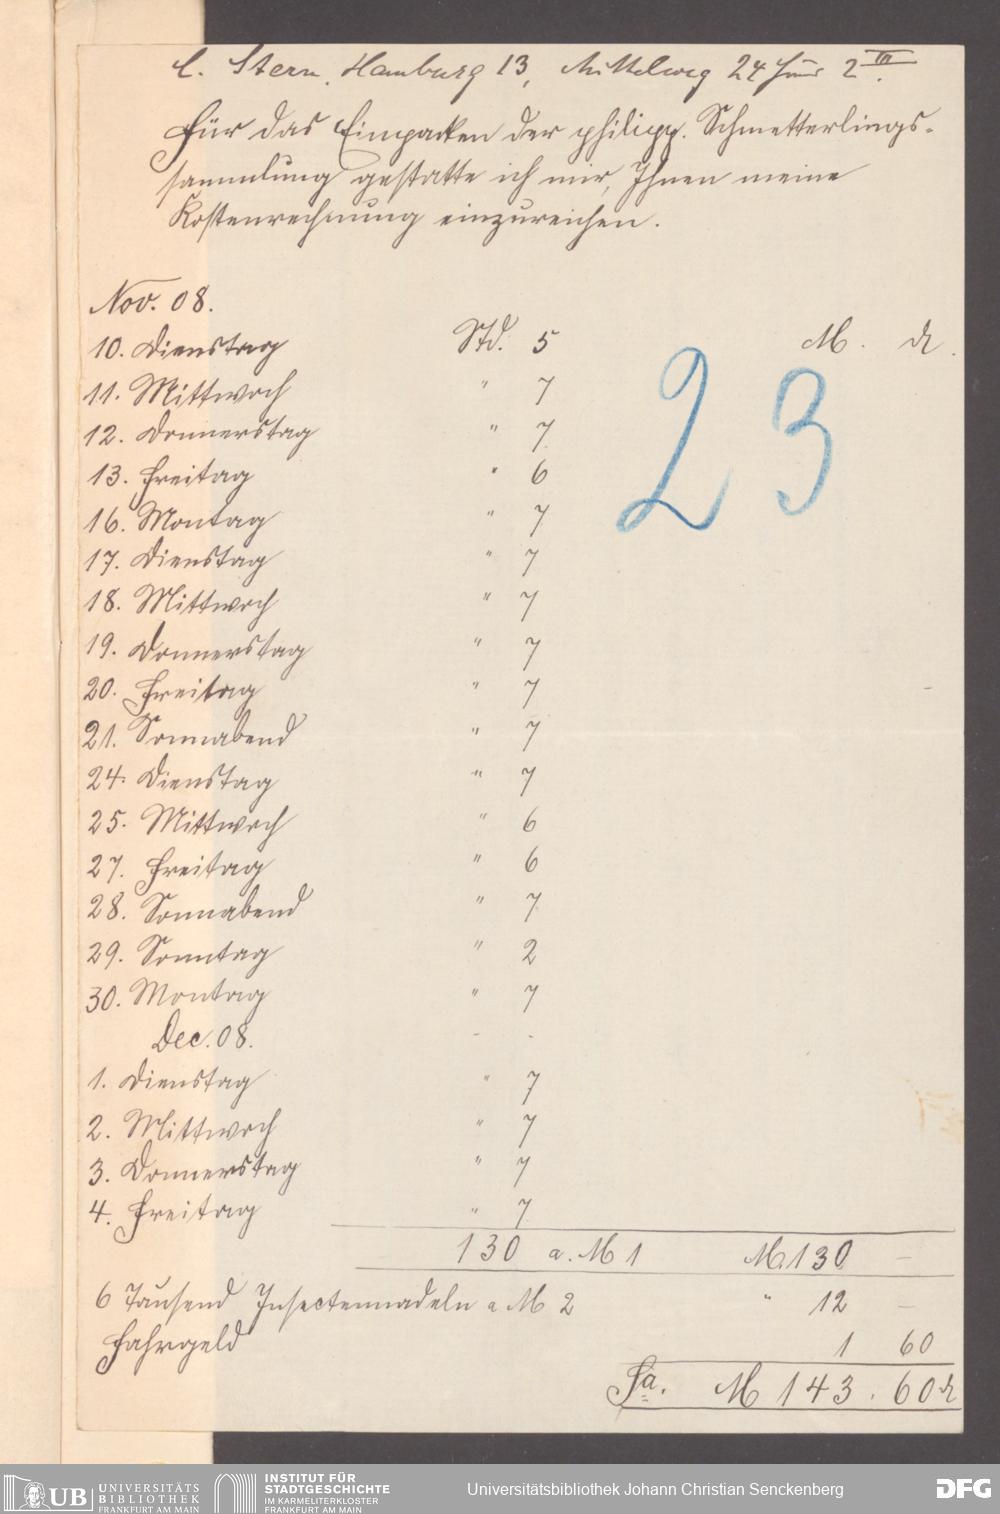 C. Stern, Hamburg 13, Mittelweg 24 Haus 2 III.
Für das Einpacken der philipp. Schmetterlings-
sammlung gestatte ich mir, Ihnen meine
Kostenrechnung einzureichen.
Nov. 08.
10. Dienstag Std. 5 M. ₰.
11. Mittwoch " 7
12. Donnerstag " 7
13. Freitag " 6
16. Montag " 7
17. Dienstag " 7
18. Mittwoch " 7
19. Donnerstag " 7
20. Freitag " 7
21. Sonnabend " 7
24. Dienstag " 7
25. Mittwoch " 6
27. Freitag " 6
28. Sonnabend " 7
29. Sonntag " 2
30. Montag " 7
Dec. 08.
1. Dienstag " 7
2. Mittwoch " 7
3. Donnerstag " 7
4. Freitag " 7
130 a. M 1 M. 130 —
6 Tausend Insectennadeln a M 2 " 12 —
Fahrgeld 1 60
Sa. M 143.60 ₰
23
UB UNIVERSITÄTS
BIBLIOTHEK
FRANKFURT AM MAIN
INSTITUT FÜR
STADTGESCHICHTE
IM KARMELITERKLOSTER
FRANKFURT AM MAIN
Universitätsbibliothek Johann Christian Senckenberg
DFG